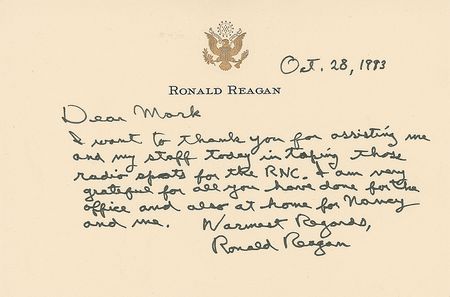 Oct. 28, 1993
RONALD REAGAN
Dear Mark
I want to thank you for assisting me
and my staff today in taping those
radio spots for the RNC. I am very
grateful for all you have done for the
office and also at home for Nancy
and me. Warmest Regards,
Ronald Reagan